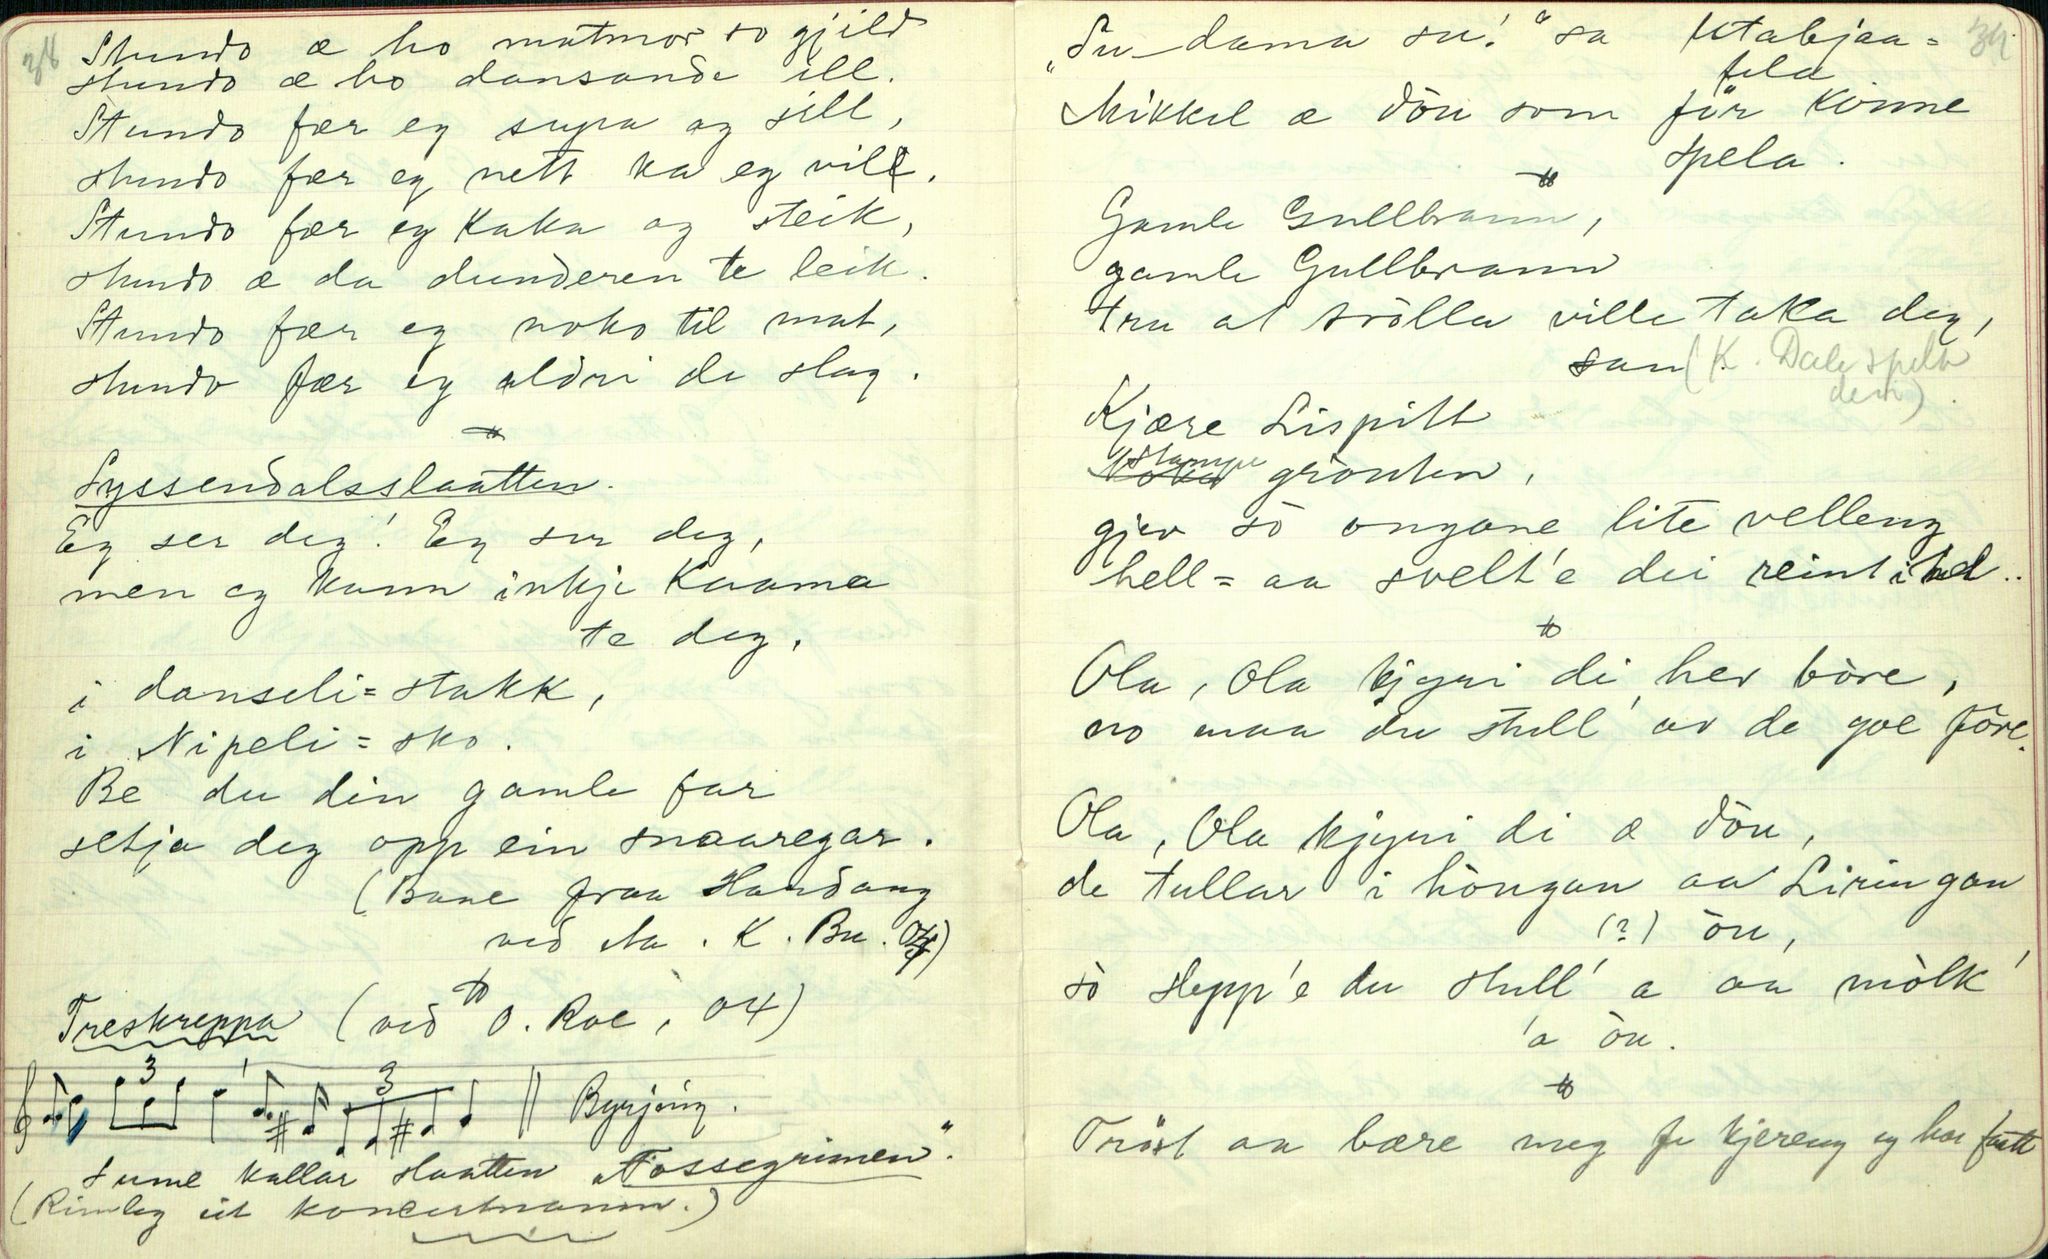 Stundo æ ho matmor so gjild
stundo æ ho dansande ill.
Stundo fær eg supa og sill,
stundo fær eg nett ka eg vill.
Stundo fær eg kaka og steik,
stundo æ da dunderen te leik.
Stundo fær eg noko til mat,
stundo fær eg aldri de slag.
Lyssendalsslaatten.
Eg ser deg! Eg ser deg,
men eg kann inkje kaama
te deg,
i danseli=stakk,
i Nipeli=sko.
Be du din gamle far
setja deg opp ein snaaregar.
(Bane fraa Hardang
ved Aa. K. Bu. 04)
Treskreppa (ved O. Roe, 04)
3 3 Byrjing.
Sume kallar slaatten „Fossegrimen".
(Rimleg eit koncertnamn.)
34
„Su dama su!" sa Utabjaa=
feld
Mikkel æ dön som för kunne
spela.
Gamle Gullbrann,
gamle Gullbrann
tru at trölla ville taka deg,
san (K. Dale spela
den)
Kjære Lispitt
Stampe grönten,
gjev sò ongane lite velleng
hell=aa svelt'e dei reint ihel.
Ola, Ola kjyri di hev bòre,
no maa du stell' av de goe fòre.
Ola, Ola kjyri di æ dòu,
de tullar i hòngan aa Liringan
(?) òu,
sò slepp'e du stell' a aa mòlk'
'a òu.
Tröst aa bære meg fe kjereng eg har fatt